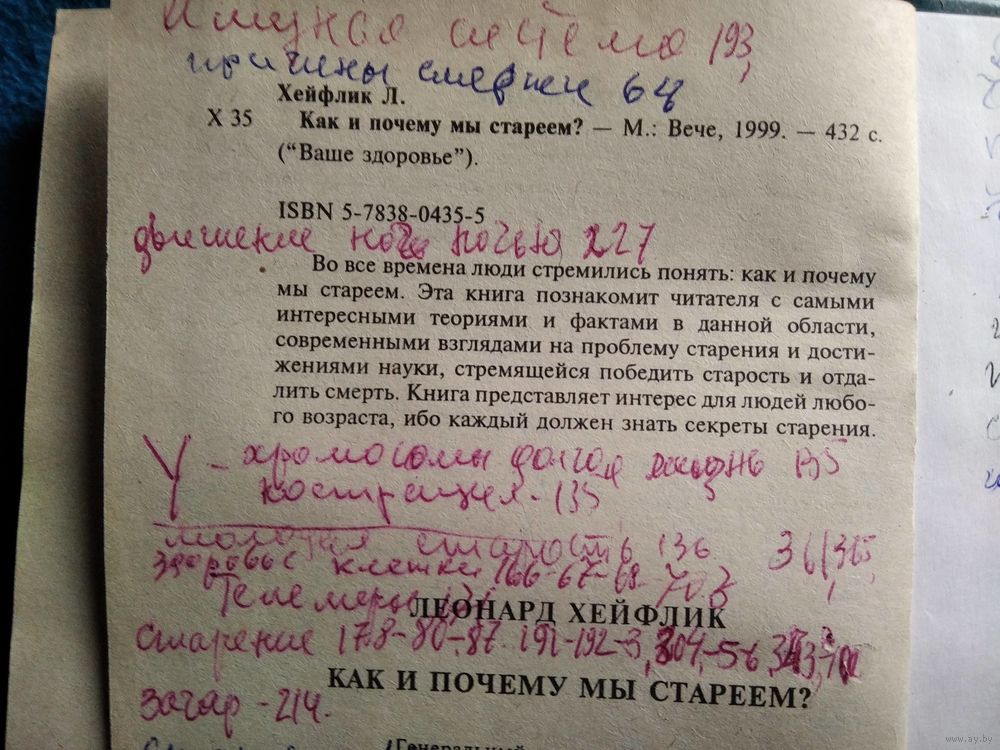 Имуная система 193,
причины смерти 64
Хейфлик Л.
Х 35 Как и почему мы стареем? — М.: Вече, 1999. — 432 с.
(“Ваше здоровье”).
ISBN 5-7838-0435-5
движение ночью 227
Во все времена люди стремились понять: как и почему
мы стареем. Эта книга познакомит читателя с самыми
интересными теориями и фактами в данной области,
современными взглядами на проблему старения и дости-
жениями науки, стремящейся победить старость и отда-
лить смерть. Книга представляет интерес для людей любо-
го возраста, ибо каждый должен знать секреты старения.
У - хромосомы долгая жизнь 135
кострация - 135
молодая старость 136
здоровье клетки 166-67-68-
Телемеры
ЛЕОНАРД ХЕЙФЛИК
Старение 178-80-87. 191-192-3,
КАК И ПОЧЕМУ МЫ СТАРЕЕМ?
загар - 214.
(Генеральный
www.ay.by